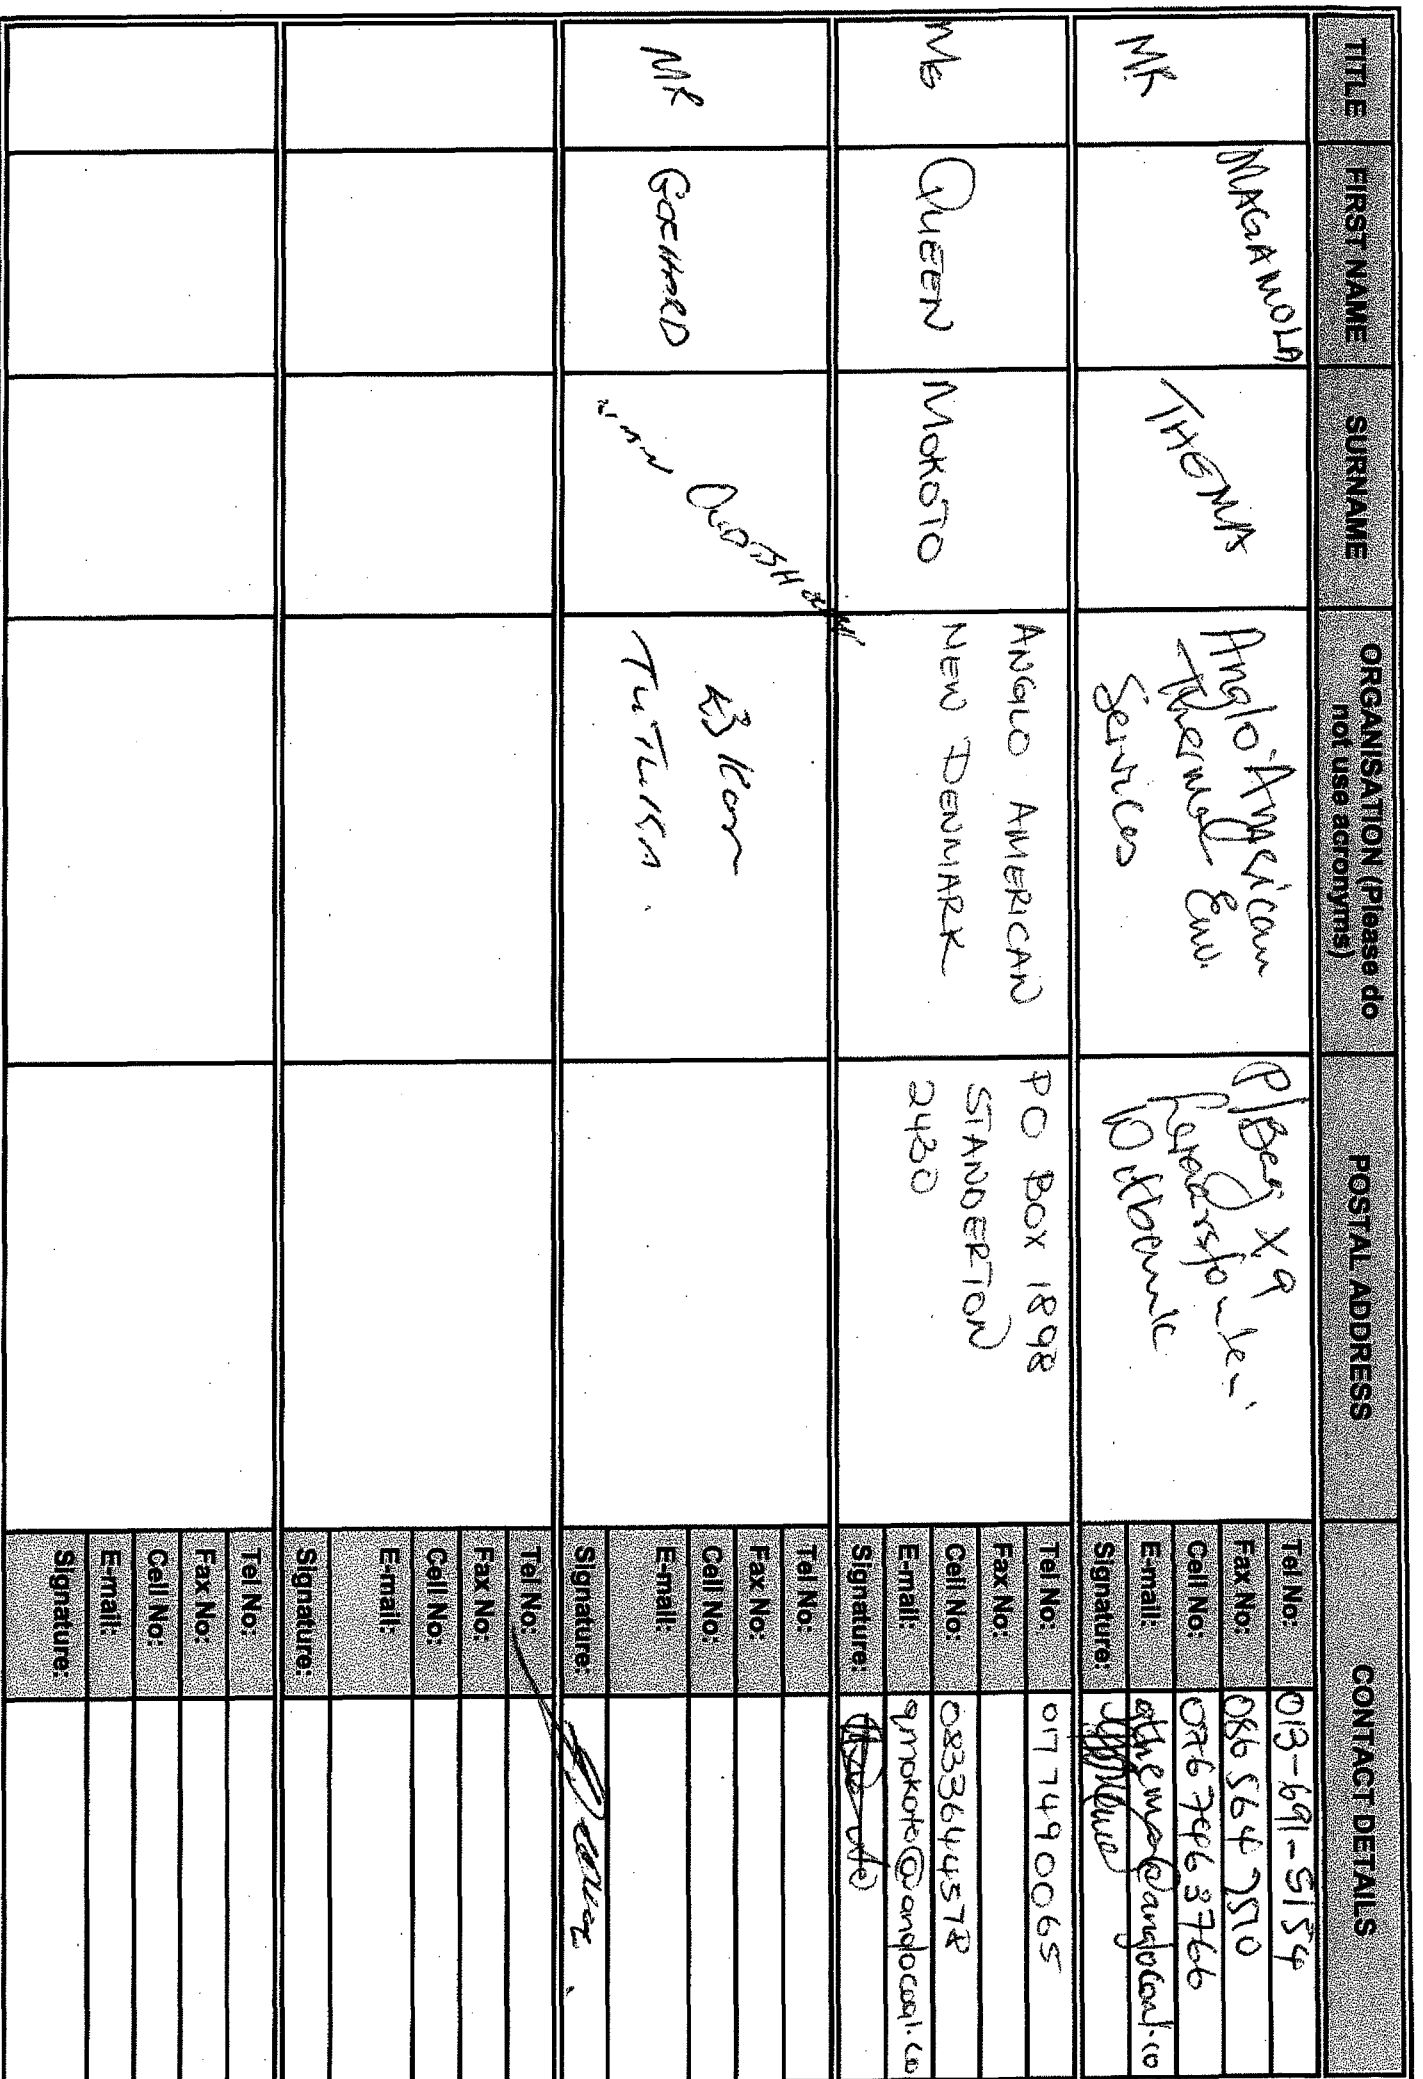 TITLE
FIRST NAME
SURNAME
ORGANISATION (Please do
not use acronyms)
POSTAL ADDRESS
CONTACT DETAILS
MR
MAGAMOLA
THEMA
Anglo American
Thermal Env.
Services
P/Bag X9
Witbank
Tel No: 013-691-5154
Fax No: 086 564 7510
Cell No:
E-mail:
Signature:
Ms
QUEEN
MOKOTO
ANGLO AMERICAN
NEW DENMARK
PO BOX 1898
STANDERTON
2430
Tel No: 017 7490065
Fax No:
Cell No: 0833644578
E-mail: qmokoto@anglocoal.co
Signature:
MR
TUTUKA
Tel No:
Fax No:
Cell No:
E-mail:
Signature:
Tel No:
Fax No:
Cell No:
E-mail:
Signature:
Tel No:
Fax No:
Cell No:
E-mail:
Signature: